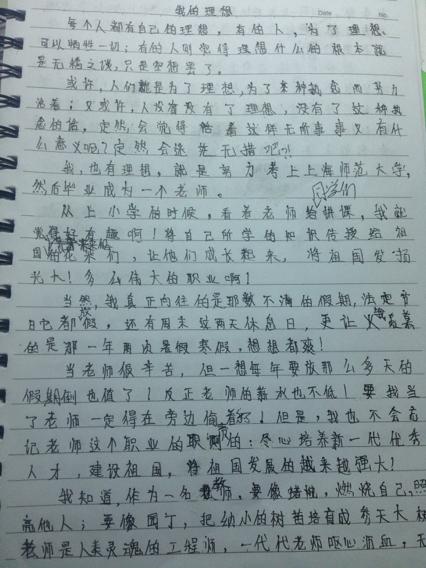 我的理想
Date
No.
每个人都有自己的理想，有的人，为了理想，
可以牺牲一切；有的人则觉得理想什么的根本就
是无稽之谈，只是空想罢了。
或许，人们就是为了理想，为了某种执念而努力
活着；又或许，人没有没有了理想，没有了这种执
念的话，定然会觉得活着这样无所事事又有什
么意义呢？定然会迷失无措吧？！
我，也有理想，就是努力考上上海师范大学，
然后毕业成为一个老师。
同学们
从上小学的时候，看着老师给讲课，我就
觉得好有趣啊！将自己所学的知识传授给祖
国的花朵们，让他们成长起来，将祖国发扬
光大！多么伟大的职业啊！
当然，我真正向往的是那数不清的假期，法定节
日它都放假，还有周末这两天休息日，更让人羡慕
的是那一年两次暑假寒假，想想都爽！
当老师很辛苦，但一想每年要放那么多天的
假期倒也值了！反正老师的薪水也不低！要我当
了老师一定得在旁边偷着乐！但是，我也不会忘
记老师这个职业的职责的：尽心培养新一代优秀
人才，建设祖国，将祖国发展的越来越强大！
我知道，作为一名教师，要像蜡烛，燃烧自己，照
亮他人；要像园丁，把幼小的树苗培育成参天大树
老师是人类灵魂的工程师，一代代老师呕心沥血，无